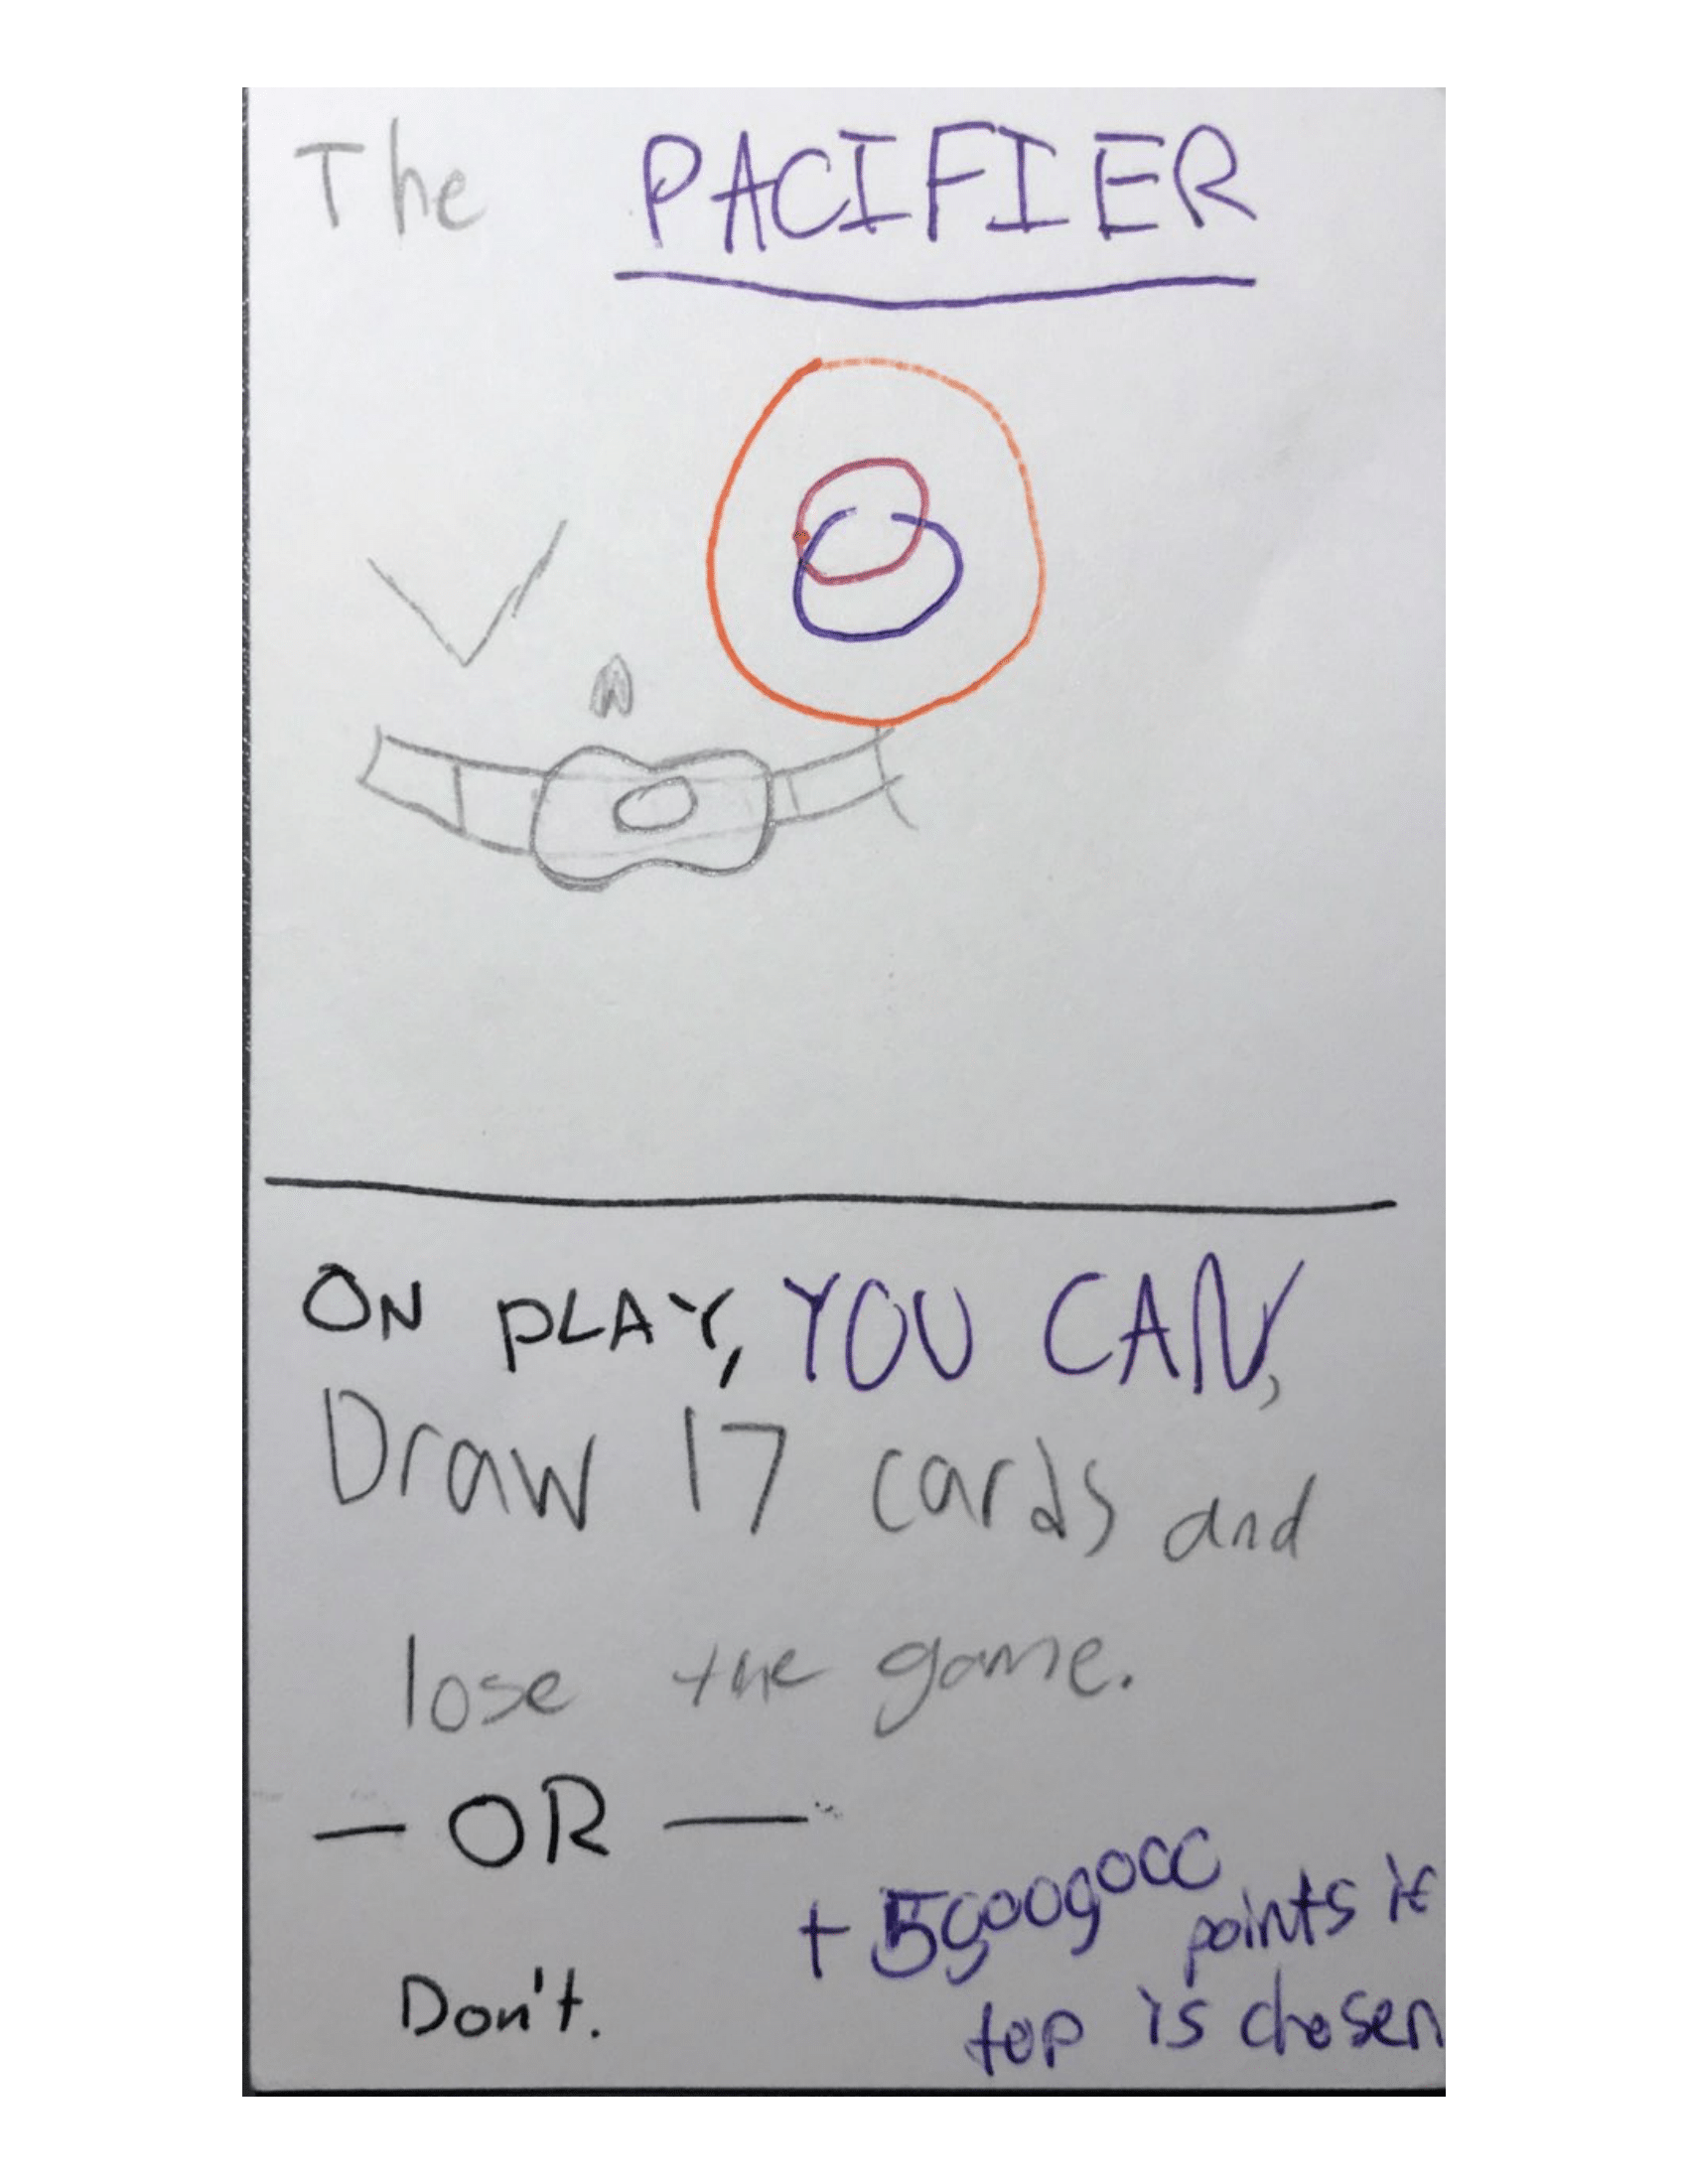 The PACIFIER
ON PLAY, YOU CAN,
Draw 17 cards and
lose the game.
— OR —
Don't.
+ points if
top is chosen